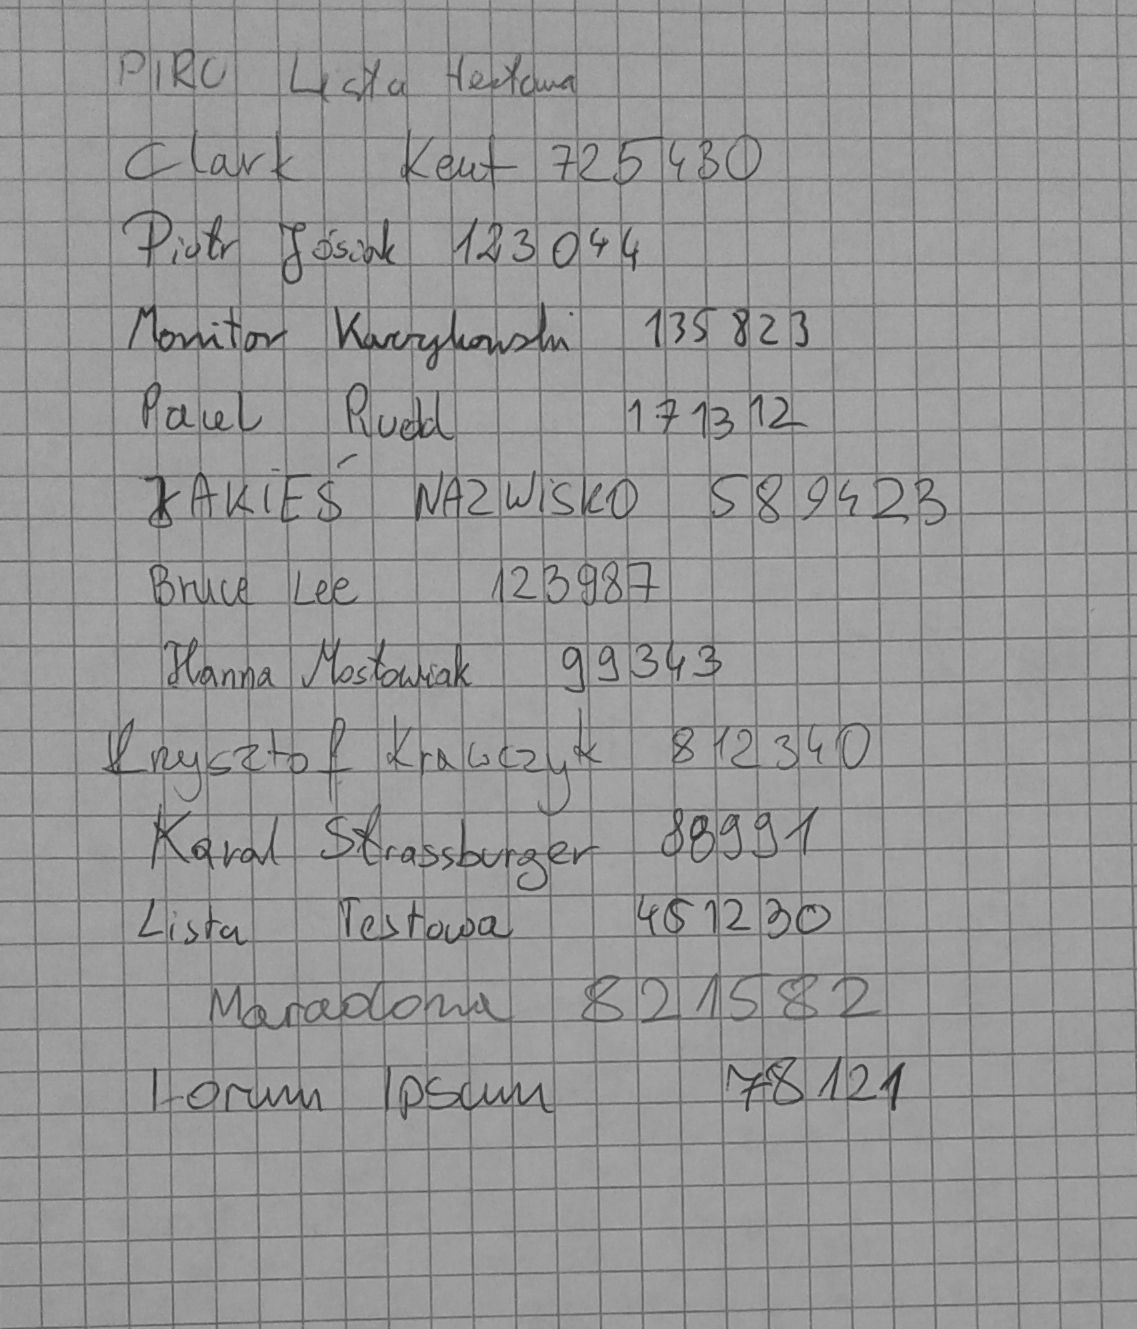 PIRO Lista
Clark Kent 725430
Piotr Jósiak 123044
Monitor 135823
Paul Rudd 171312
JAKIEŚ NAZWISKO 589423
Bruce Lee 123987
Hanna Mostowiak 99343
Krzysztof Krawczyk 812340
Karol Strassburger 88991
Lista Testowa 451230
Maradona 821582
Lorum Ipsum 78121